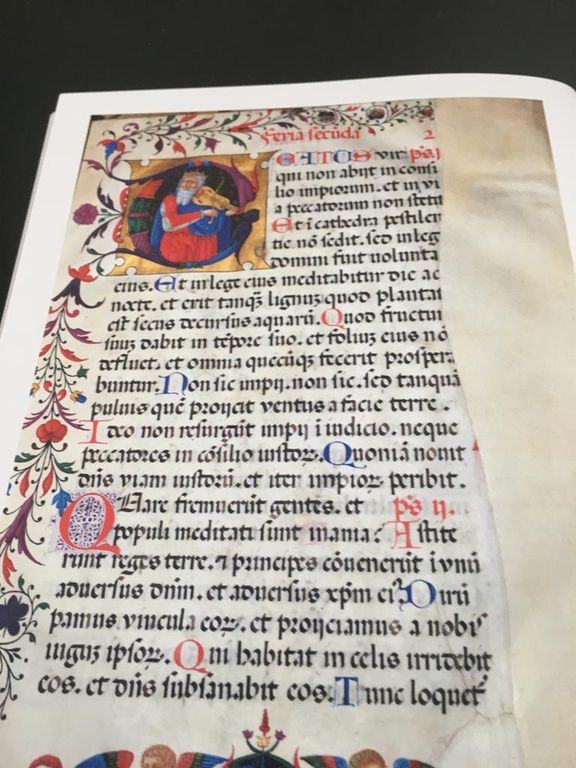 Feria secūda 2
BEATUS vir ps. j
qui non abijt in consi
lio impiorum. et in vi
a peccatorum non stetit
Et i cathedra pestilen
tie nō sedit. sed in leg
domini fuit volunta
eius. Et in lege eius meditabitur die ac
nocte. et erit tanqȝ lignuȝ quod plantat
est secus decursus aquarū. Quod fructū
suuȝ dabit in tēpore suo. et foliuȝ eius nō
defluet. et omnia quecūqȝ fecerit prospera
buntur. Non sic impij. non sic. sed tanquā
puluis quē proijcit ventus a facie terre.
Ideo non resurgūt impij i iudicio. neque
peccatores in cōsilio iustoꝝ. Quoniā nouit
dn̄s viam iustorū. et iter impioꝝ peribit.
Quare fremuerūt gentes. et ps. ij.
populi meditati sunt inania? Astite
runt reges terre. ⁊ principes cōuenerūt i vnū
aduersus dnm̄. et aduersus xp̄m eiꝰ Dirū
pamus vincula eoꝝ. et proijciamus a nobis
iuguȝ ipsoꝝ. Qui habitat in celis irridebit
eos. et dn̄s subsanabit eos. Tunc loquet᷑